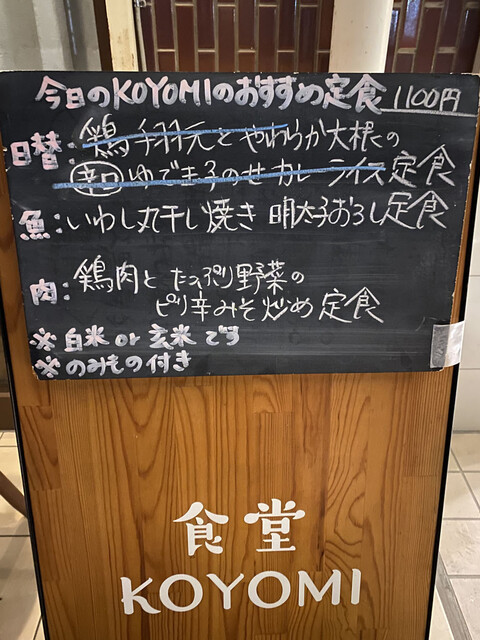 今日のKOYOMIのおすすめ定食 1100円
日替:鶏手羽元とやわらか大根の
辛口ゆでき子のせカレーライス定食
魚:いわし丸干し焼き 明太子おろし定食
肉:鶏肉とたっぷり野菜の
ピリ辛みそ炒め定食
※白米or玄米です
※のみもの付き
食堂
KOYOMI